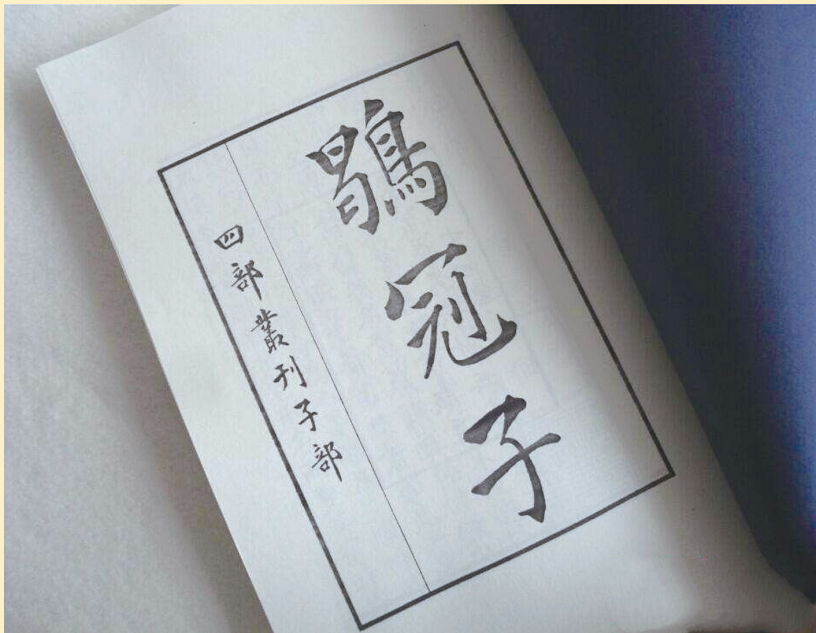 鶡冠子
四部叢刊子部